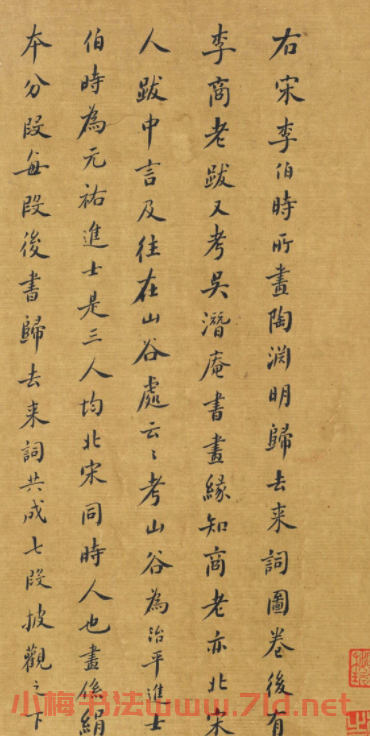 右宋李伯時所畫陶淵明歸去来詞圖卷後有
李商老跋又考吳潛庵書畫緣知商老亦北宋
人跋中言及往在山谷處云〻考山谷為治平進士
伯時為元祐進士是三人均北宋同時人也畫係絹
本分段每段後書歸去来詞共成七段披觀之下
小梅书法www.7ld.net